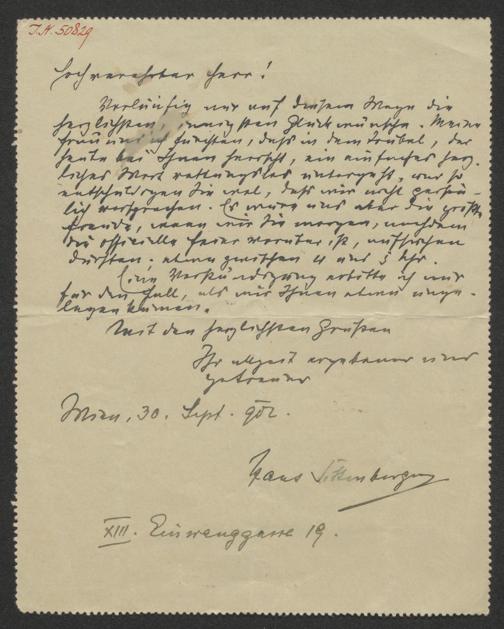 I.N. 50829
Hochverehrter Herr!
Vorläufig nur auf diesem Wege die
herzlichsten, innigsten Glückwünsche. Meine
Frau und ich fürchten, dass in dem Trubel, der
heute bei Ihnen herrscht, ein einfaches herz-
liches Wort rettungslos untergeht, und so
entschuldigen Sie wol, dass wir nicht persön-
lich vorsprechen. Es wäre uns aber die größte
Freude, wenn wir Sie morgen, nachdem
die officielle Feier vorüber ist, aufsuchen
dürften. etwa zwischen 4 und 5 Uhr.
Eine Verständigung erbitte ich nur
für den Fall, als wir Ihnen etwa unge-
legen kämen.
Mit den herzlichsten Grüßen
Ihr allzeit ergebener und
getreuer
Wien, 30. Sept. 902.
Hans Sittenberger
XIII. Einwanggasse 19.